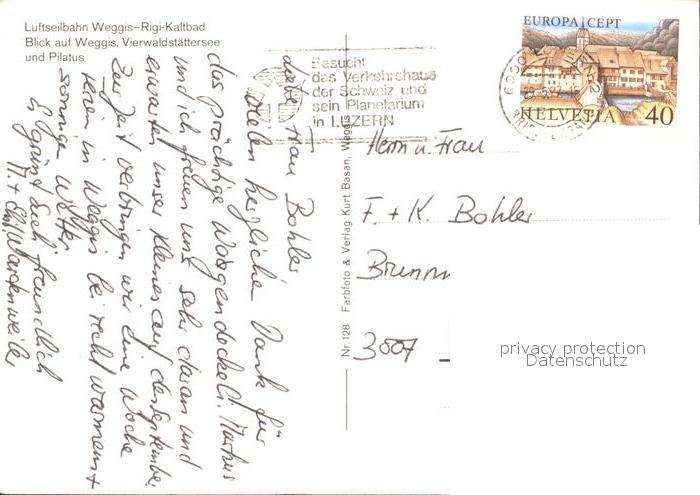 Luftseilbahn Weggis–Rigi-Kaltbad
Blick auf Weggis, Vierwaldstättersee
und Pilatus
Liebe Frau Bohler
Vielen herzlichen Dank für
das prächtige Waagendeckeli. Markus
und ich freuen uns sehr daran und
erwarten unser Kleines auf den September.
Zur Zeit verbringen wir eine Woche
Ferien in Weggis bei recht warmem +
sonnigen Wetter.
Es grüsst Euch freundlich
M. +
Nr. 128 Farbfoto & Verlag Kurt Basan, Weggis
Besucht
das Verkehrshaus
der Schweiz und
sein Planetarium
in LUZERN
EUROPA CEPT
HELVETIA 40
Herrn u. Frau
F. + K. Bohler
3007
privacy protection
Datenschutz